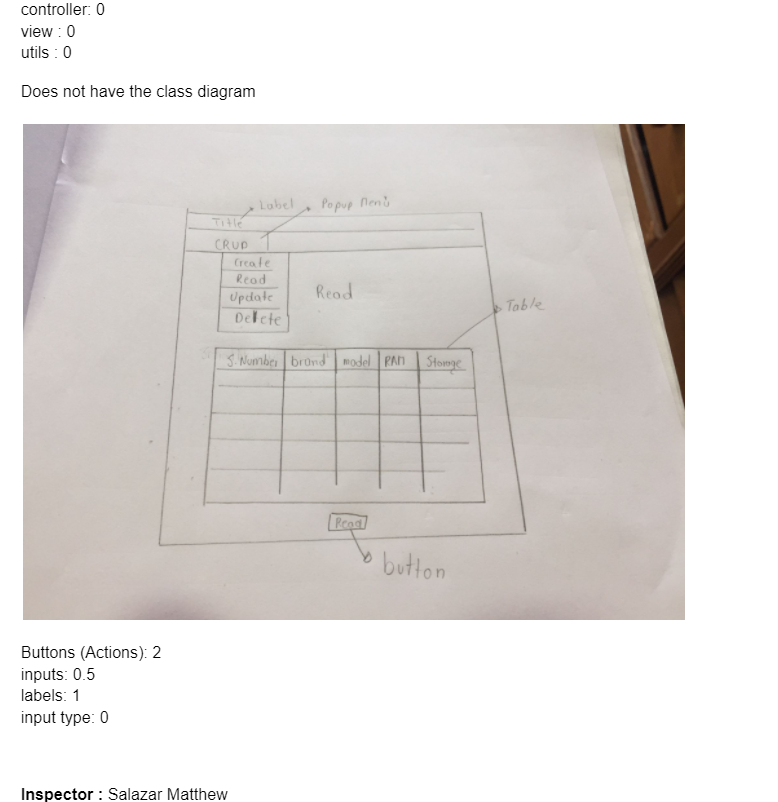 controller: 0
view : 0
utils : 0
Does not have the class diagram
Label Popup Menú
Title
CRUD
Create
Read
Update
Delete
Read
Table
S. Number brand model RAM Storage
Read
button
Buttons (Actions): 2
inputs: 0.5
labels: 1
input type: 0
Inspector : Salazar Matthew